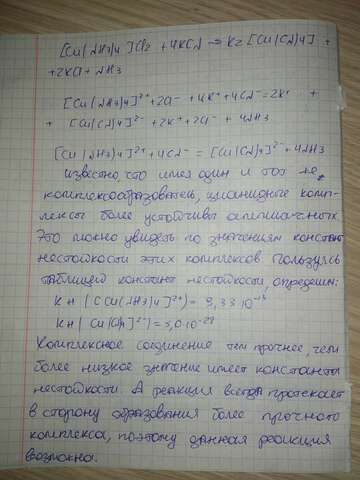 [Cu(NH3)4]Cl2 + 4KCN → K2[Cu(CN)4] +
+ 2KCl + NH3
[Cu(NH3)4]2+ + 2Cl- + 4K+ + 4CN- = 2K+ +
+ [Cu(CN)4]2- + 2K+ + 2Cl- + 4NH3
[Cu(NH3)4]2+ + 4CN- = [Cu(CN)4]2- + 4NH3
Известно, что имея один и тот же
комплексообразователь, цианидные комп-
лексы более устойчивы аммиачных.
Это можно увидеть по значениям констант
нестойкости этих комплексов. Пользуясь
таблицей констант нестойкости, определим:
Kн([Cu(NH3)4]2+) = 9,33·10-13
Kн[Cu(CN)4]2-) = 5,0·10-28
Комплексное соединение тем прочнее, чем
более низкое значение имеет константа
нестойкости. А реакция всегда протекает
в сторону образования более прочного
комплекса, поэтому данная реакция
возможна.